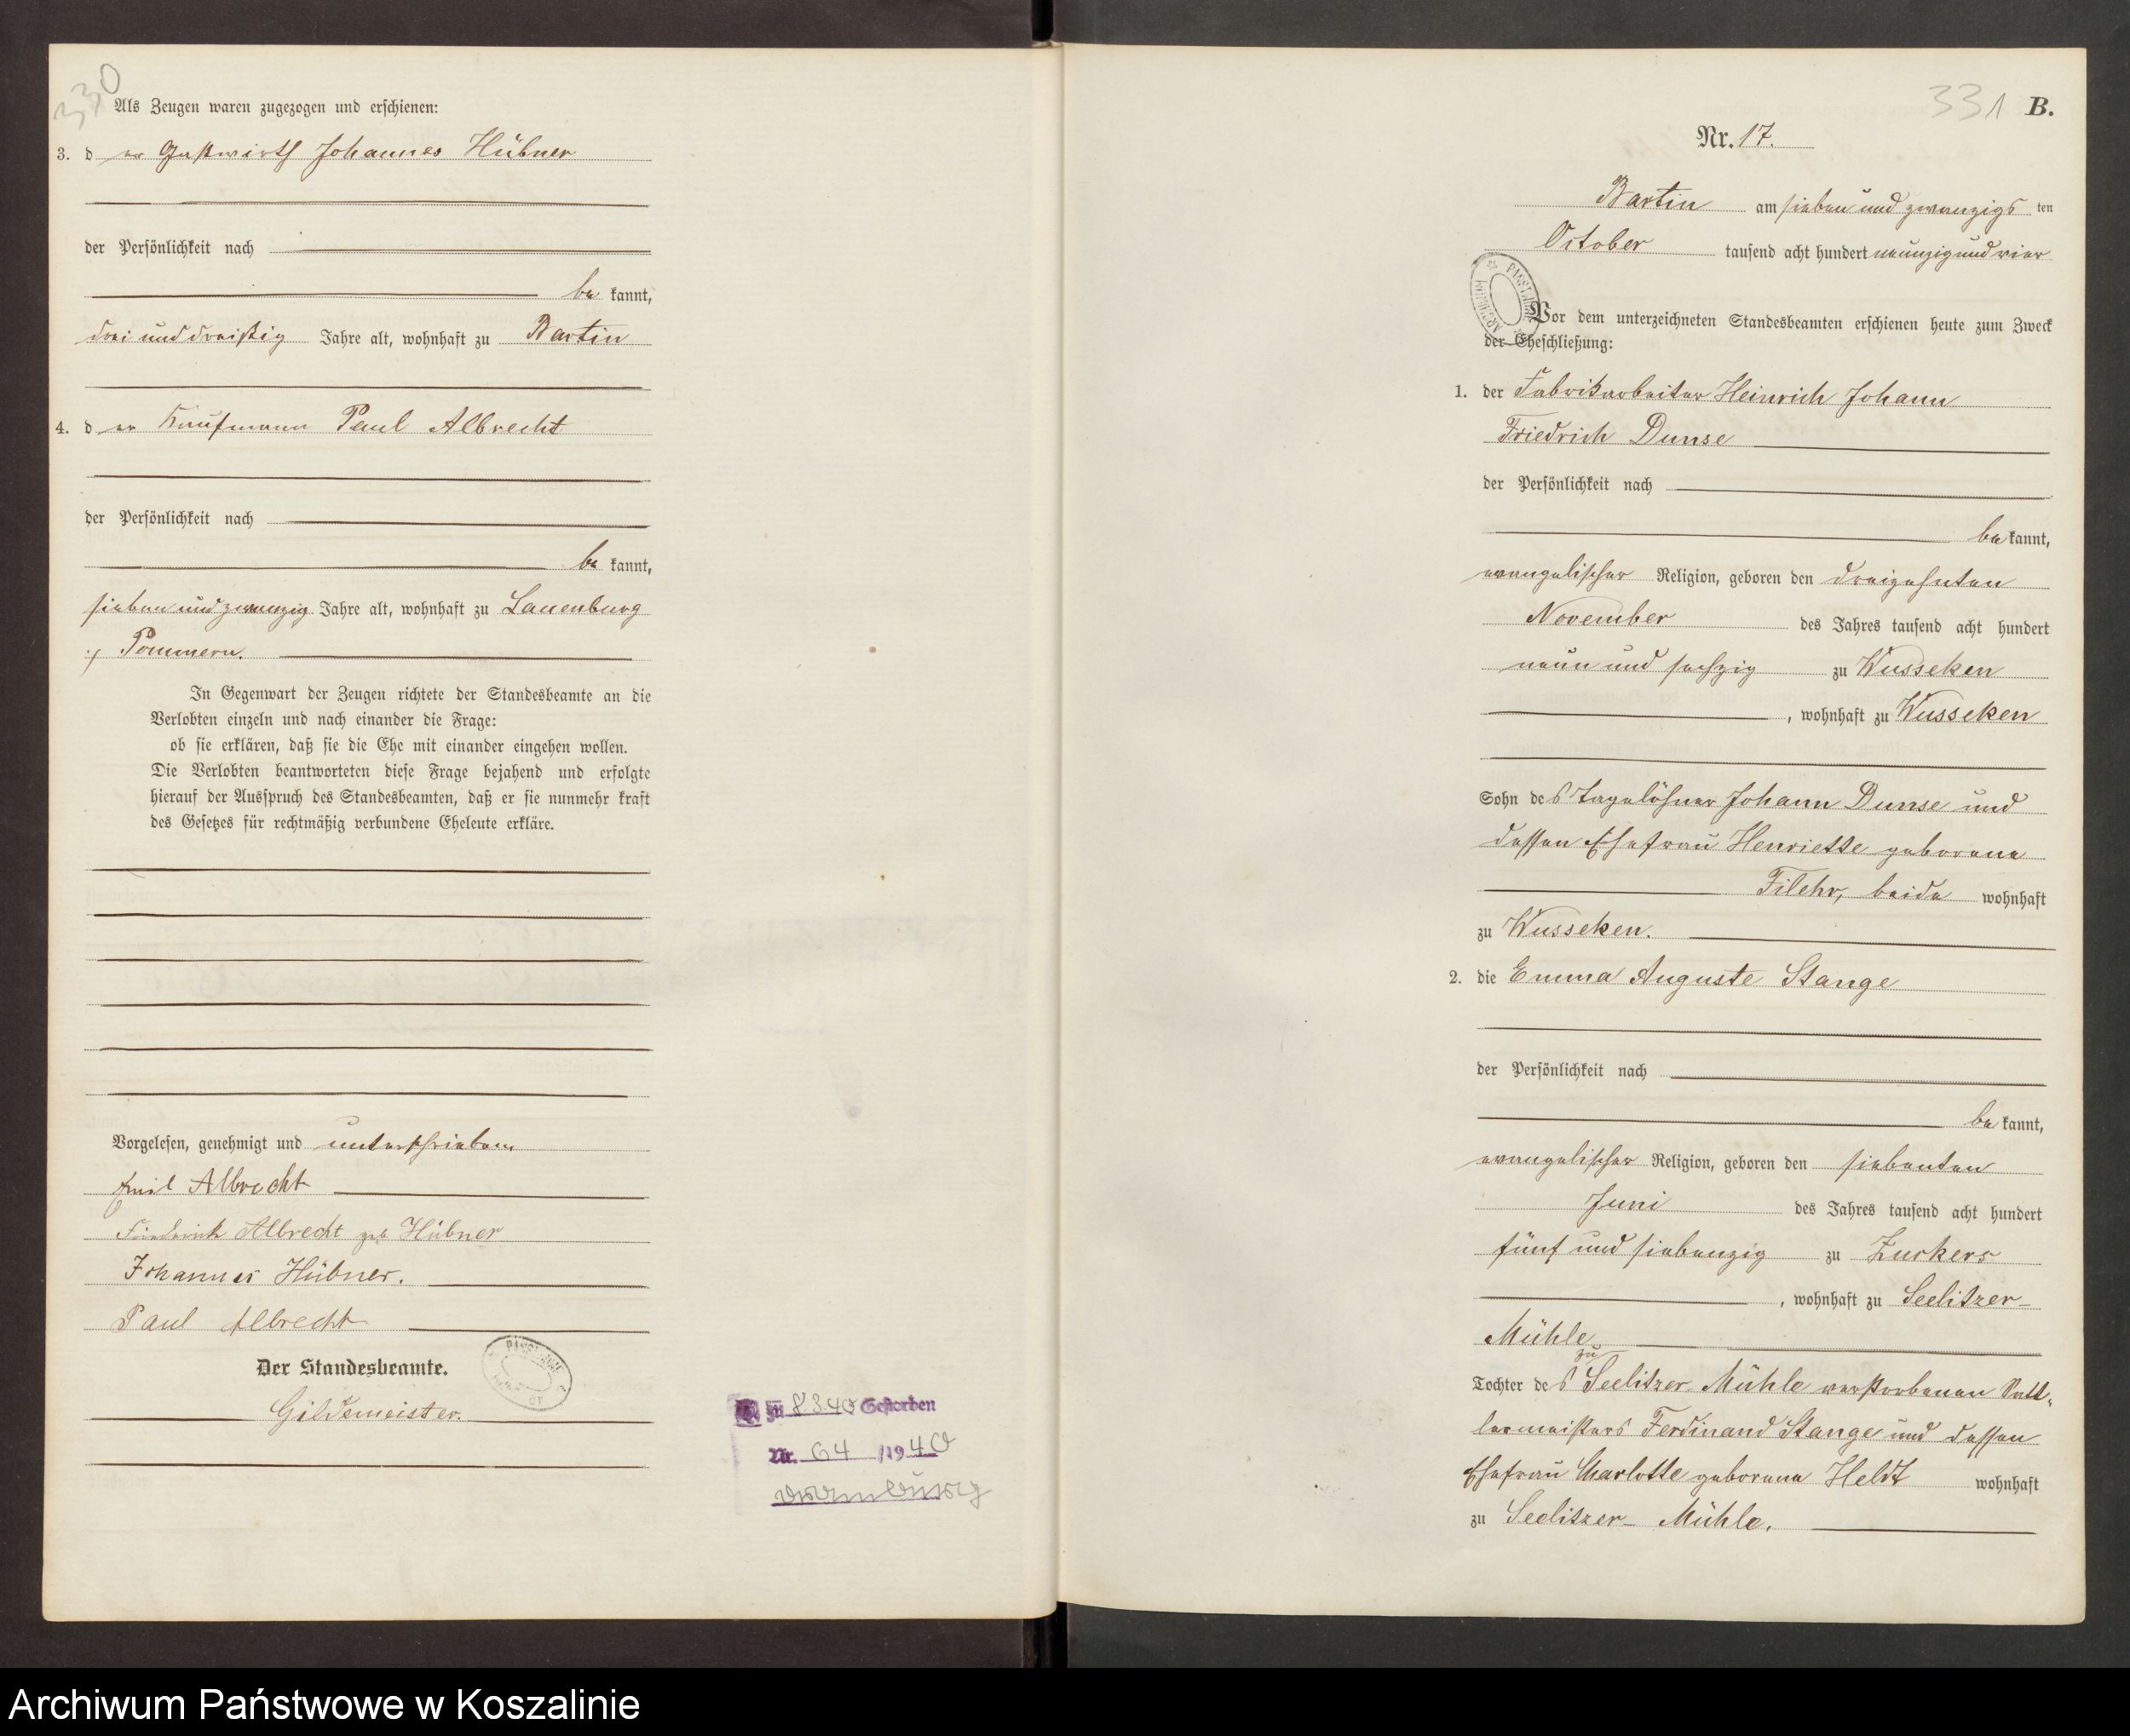 330
Als Zeugen waren zugezogen und erschienen:
3. der Gastwirth Johannes Hübner
der Persönlichkeit nach
be kannt,
drei und dreißig Jahre alt, wohnhaft zu Bartin
4. der Kaufmann Paul Albrecht
der Persönlichkeit nach
be kannt,
sieben und zwanzig Jahre alt, wohnhaft zu Lauenburg
Pommern.
In Gegenwart der Zeugen richtete der Standesbeamte an die
Verlobten einzeln und nach einander die Frage:
ob sie erklären, daß sie die Ehe mit einander eingehen wollen.
Die Verlobten beantworteten diese Frage bejahend und erfolgte
hierauf der Ausspruch des Standesbeamten, daß er sie nunmehr kraft
des Gesetzes für rechtmäßig verbundene Eheleute erkläre.
Vorgelesen, genehmigt und unterschrieben
Emil Albrecht
Albrecht geb Hübner
Johannes Hübner.
Paul Albrecht
Der Standesbeamte.
Gildemeister.
zu 8340 Gestorben
Nr. 64 /1940
331 B.
Nr. 17.
Bartin am sieben und zwanzigs ten
October tausend acht hundert neunzig und vier
Vor dem unterzeichneten Standesbeamten erschienen heute zum Zweck
der Eheschließung:
1. der Fabrikarbeiter Heinrich Johann
Friedrich Dunse
der Persönlichkeit nach
be kannt,
evangelischer Religion, geboren den dreizehnten
November des Jahres tausend acht hundert
neun und sechzig zu Wusseken
, wohnhaft zu Wusseken
Sohn des Tagelöhner Johann Dunse und
dessen Ehefrau Henriette geborene
Filehr, beide wohnhaft
zu Wusseken.
2. die Emma Auguste Stange
der Persönlichkeit nach
be kannt,
evangelischer Religion, geboren den siebenten
Juni des Jahres tausend acht hundert
fünf und siebenzig zu Zuckers
, wohnhaft zu Seelitzer-
Mühle
Tochter des zu Seelitzer Mühle verstorbenen Satt-
lermeisters Ferdinand Stange und dessen
Ehefrau Charlotte geborene Heldt wohnhaft
zu Seelitzer- Mühle.
Archiwum Państwowe w Koszalinie